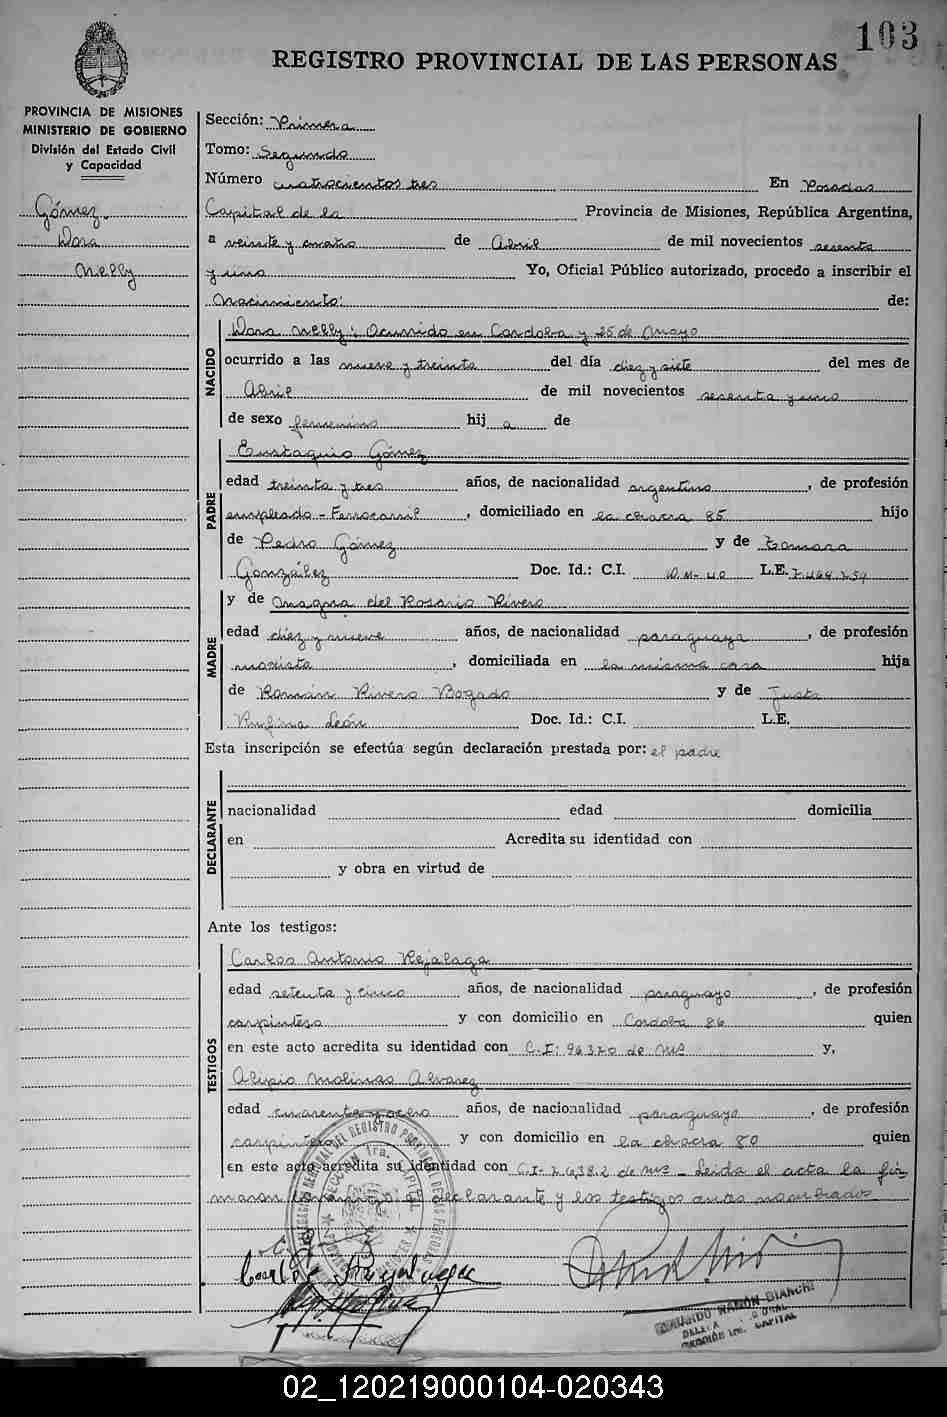 103
REGISTRO PROVINCIAL DE LAS PERSONAS
PROVINCIA DE MISIONES
MINISTERIO DE GOBIERNO
División del Estado Civil
y Capacidad
Gómez
Dora
Nelly
Sección: Primera
Tomo: Segundo
Número cuatrocientos tres En Posadas
Capital de la Provincia de Misiones, República Argentina,
a veinte y cuatro de Abril de mil novecientos sesenta
y uno Yo, Oficial Público autorizado, procedo a inscribir el
Nacimiento: de:
NACIDO
Dora Nelly: Ocurrido en Cordoba y 25 de Mayo
ocurrido a las nueve y treinta del día diez y siete del mes de
Abril de mil novecientos sesenta y uno
de sexo femenino hij a de
PADRE
Eustaquio Gómez
edad treinta y tres años, de nacionalidad argentino, de profesión
empleado - Ferrocarril, domiciliado en la chacra 85 hijo
de Pedro Gómez y de Tomara
González Doc. Id.: C.I. D.M. 40 L.E. 7.464.759
MADRE
y de Magna del Rosario Rivero
edad diez y nueve años, de nacionalidad paraguaya, de profesión
modista, domiciliada en la misma casa hija
de Román Rivero Bogado y de Justa
Rufina León Doc. Id.: C.I. L.E.
Esta inscripción se efectúa según declaración prestada por: el padre
DECLARANTE
nacionalidad edad domicilia
en Acredita su identidad con
y obra en virtud de
Ante los testigos:
TESTIGOS
Carlos Antonio Rejalaga
edad setenta y cinco años, de nacionalidad paraguayo, de profesión
carpintero y con domicilio en Cordoba 86 quien
en este acto acredita su identidad con C.I: 96320 de Ms y,
Alipio Molinas Alvarez
edad cuarenta y ocho años, de nacionalidad paraguayo, de profesión
carpintero y con domicilio en la chacra 80 quien
en este acto acredita su identidad con C.I- 7.638.2 de Ms - Leida el acta la fir-
maron conmigo el declarante y los testigos antes nombrados
DEL REGISTRO PROVINCIAL DE LAS PERSONAS
SECCION 1ra. CAPITAL
RAMÓN BIANCHI
SECCIÓN 1ra. CAPITAL
02_120219000104-020343